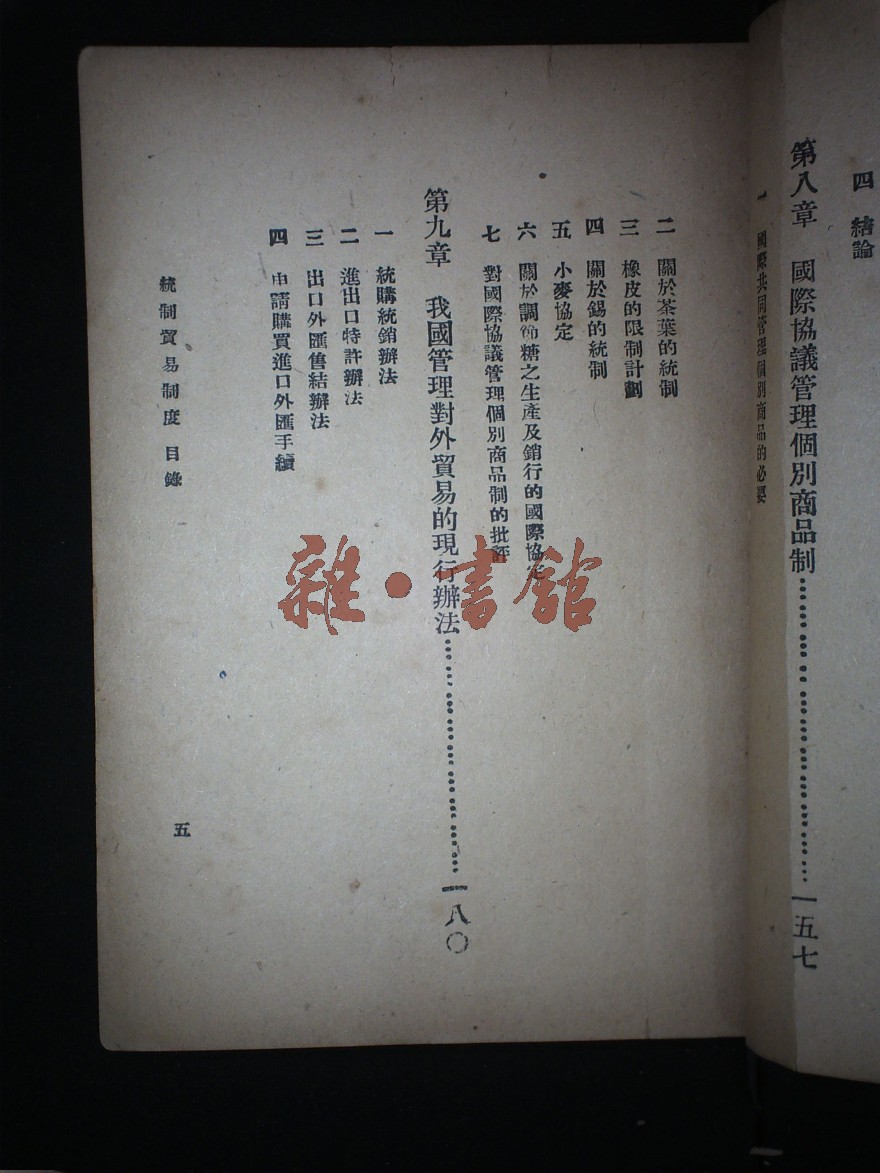 四　結論
第八章　國際協議管理個別商品制……………………一五七
一　國際共同管理個別商品的必要
二　關於茶葉的統制
三　橡皮的限制計劃
四　關於錫的統制
五　小麥協定
六　關於調節糖之生產及銷行的國際協定
七　對國際協議管理個別商品制的批評
第九章　我國管理對外貿易的現行辦法……………………一八〇
一　統購統銷辦法
二　進出口特許辦法
三　出口外匯售結辦法
四　申請購買進口外匯手續
統制貿易制度　目錄
五
雜·書館